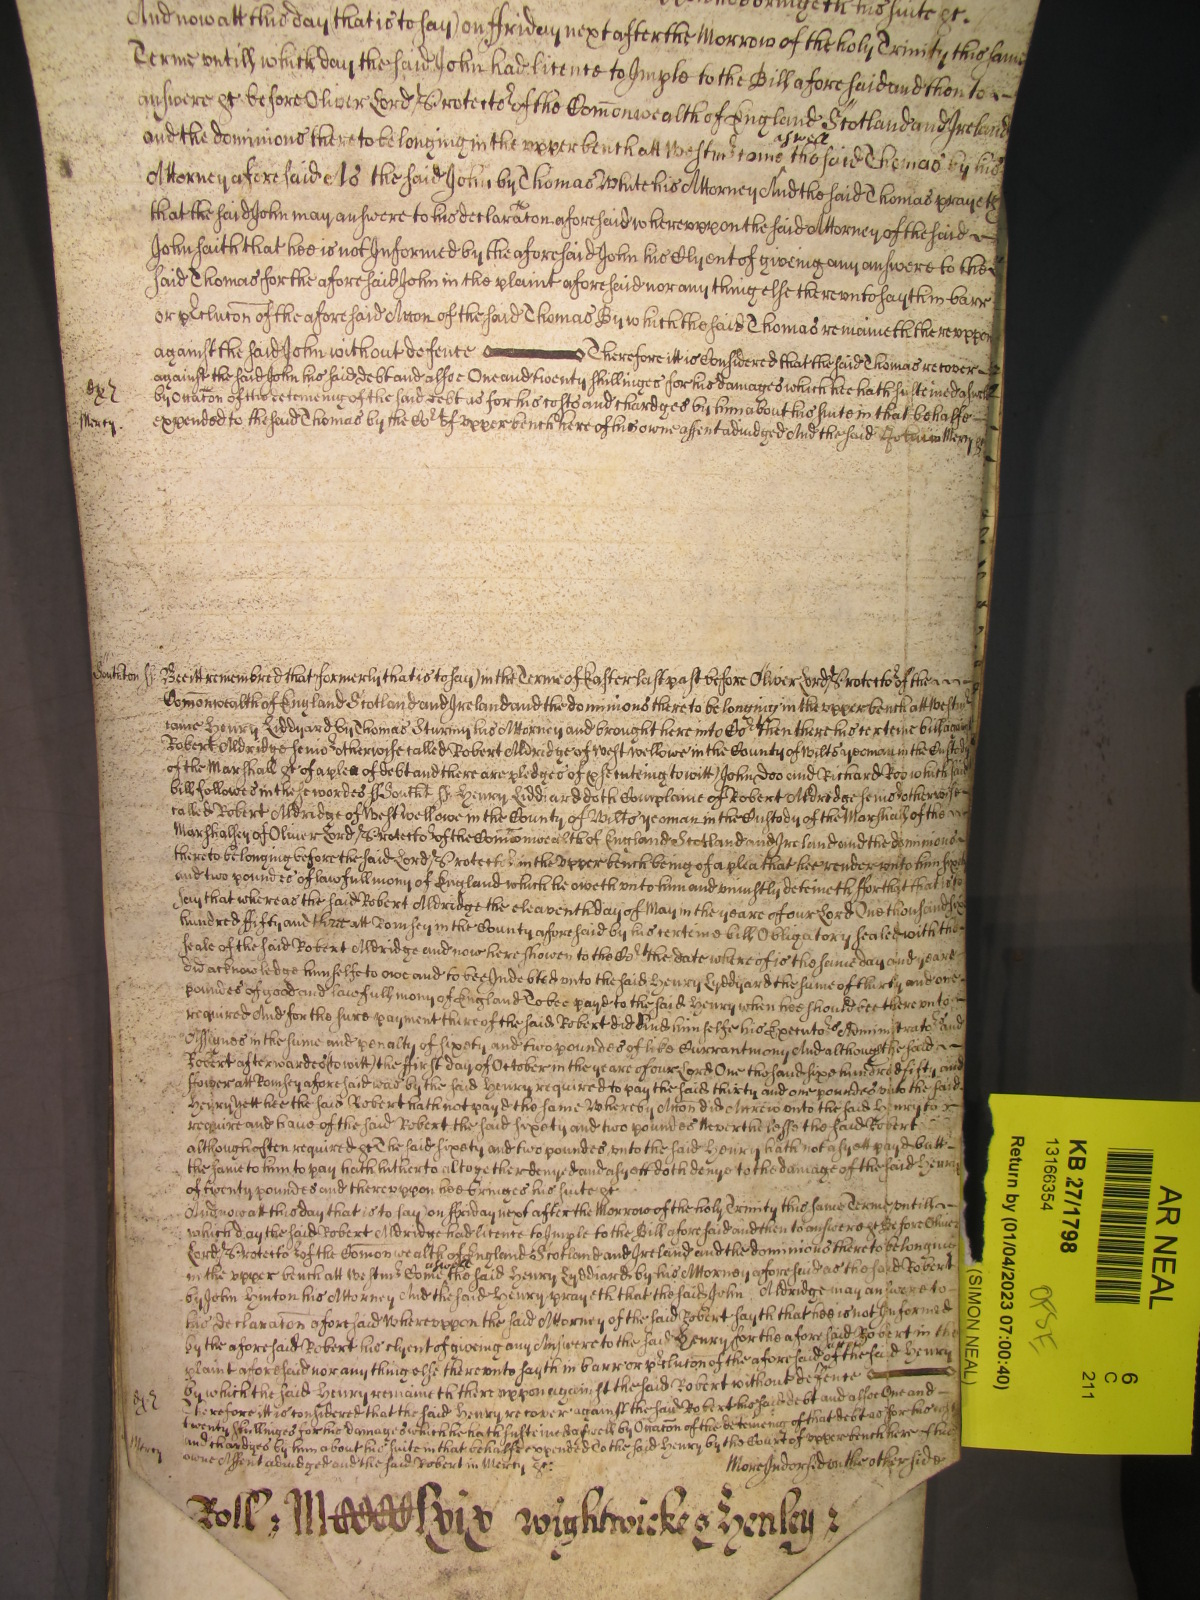 bringeth his suite &c.
And now att this day (that is to say) on ffriday next after the Morrow of the holy Trinity this same
Terme untill which day the said John had licence to Imple to the Bill aforesaid and then to
answere &c before Oliver Lord Protector of the Com̄onwealth of England Scotland and Ireland
and the dominions thereto belonging in the upper bench att Westmr came aswell the said Thomas by his
Attorney aforesaid As the said John by Thomas White his Attorney And the said Thomas prayeth
that the said John may answere to his declarac̄on aforesaid whereuppon the said Attorney of the said
John saith that hee is not Informed by the aforesaid John his Clyent of giveing any answere to the
said Thomas for the aforesaid John in the plaint aforesaid nor any thing else thereunto sayth in barr
or p̱clusion of the aforesaid Acc̄on of the said Thomas By which the said Thomas remaineth thereuppon
against the said John without defence Therefore itt is Considered that the said Thomas recover
against the said John his said debt and alsoe One and twenty shillinges for his damages which hee hath susteined aswell
by Occac̄on of the deteineing of the said debt as for his costs and chardges by him about his suite in that behalfe
expended to the said Thomas by the Cort of upper bench here of his owne assent adiudged And the said John in Mercy &c
Mercy.
Southton ss Bee itt remembred that formerly (that is to say) in the Terme of Easter last past before Oliver Lord Protector of the
Com̄onwealth of England Scotland and Ireland and the dominions thereto belonging in the upper bench att Westmr
came Henry Liddyard by Thomas Sturmy his Attorney and brought here into Cort then there his certeine bill against
Robert Aldridge senior otherwise called Robert Aldridge of West Wellowe in the County of Wilts yeoman in the Custody
of the Marshall &c of a plea of debt and there are pledges of p̱secuteing to witt John Doo and Richard Roo which said
bill followes in these wordes ss Southt ss Henry Liddiard doth Complaine of Robert Aldridge senior otherwise
called Robert Aldridge of West wellowe in the County of Wilts yeoman in the Custody of the Marshall of the
Marshallsey of Oliver Lord Protector of the Com̄onwealth of England Scotland and Ireland and the dominions
thereto belonging before the said Lord Protector in the upper bench being of a plea that hee render unto him sixty
and two poundes of lawfull mony of England which he oweth unto him and uniustly deteineth ffor that that is to
say that whereas the said Robert Aldridge the eleaventh day of May in the yeare of our Lord One thousand six
hundred fifty and three att Romsey in the County aforesaid by his certeine bill Obligatory sealed with the
seale of the said Robert Aldridge and now here showen to the Cort the date whereof is the same day and yeare
did acknowledge himselfe to owe and to bee Indebted unto the said Henry Lyddyard the sume of thirty and one
poundes of good and lawfull mony of England To bee payd to the said Henry when hee should bee thereunto
required And for the sure payment thereof the said Robert did bind himselfe his Executors Administrators and
Assignes in the sume and penalty of sixty and two poundes of like Currant mony And although the said
Robert afterwardes (to witt) the first day of October in the yeare of our Lord One thousand sixe hundred fifty and
fower att Romsey aforesaid was by the said Henry required to pay the said thirty and one poundes unto the said
Henry yett hee the said Robert hath not payd the same Whereby Acc̄on did Accrew unto the said Henry to
require and have of the said Robert the said sixty and two poundes Neverthelesse the said Robert
although often required &c The said sixty and two poundes unto the said Henry hath not as yett payd butt
the same to him to pay hath hitherto altogether denyed and as yett doth denye to the damage of the said Henry
of twenty poundes and thereuppon hee bringes his suite &c
And now att this day that is to say on ffriday next after the Morrow of the holy Trinity this same Terme untill
which day the said Robert Aldridge had licence to Imple to the Bill aforesaid and then to answere &c Before Oliver
Lord Protector of the Com̄onwealth of England Scotland and Ireland and the dominions thereto belonging
in the upper bench att Westmr Come aswell the said Henry Lyddiard by his Attorney aforesaid as the said Robert
by John Hinton his Attorney And the said Henry prayeth that the said John Aldridge may answere to
his declarac̄on aforesaid Whereuppon the said Attorney of the said Robert sayth that hee is not Informed
by the aforesaid Robert his clyent of giveing any Answere to the said Henry for the aforesaid Robert in the
plaint aforesaid nor any thing else thereunto sayth in barr or p̱clusion of the aforesaid of the said Henry
By which the said Henry remaineth thereuppon against the said Robert without defence
Therefore itt is considered that the said Henry recover against the said Robert his said debt and alsoe One and
twenty shillinges for his damages which he hath susteined aswell by Occac̄on of the deteineing of that debt as for his costs
and chardges by him about his suite in that behalfe expended To the said Henry by the Court of upper bench here of his
owne Assent adiudged and the said Robert in Mercy &c:
Mercy
More Indorsed on the other side
Roll: Wightwicke & Henley:
AR NEAL
6
C
211
KB 27/1798
13166354
Return by (01/04/2023 07:00:40)
(SIMON NEAL)